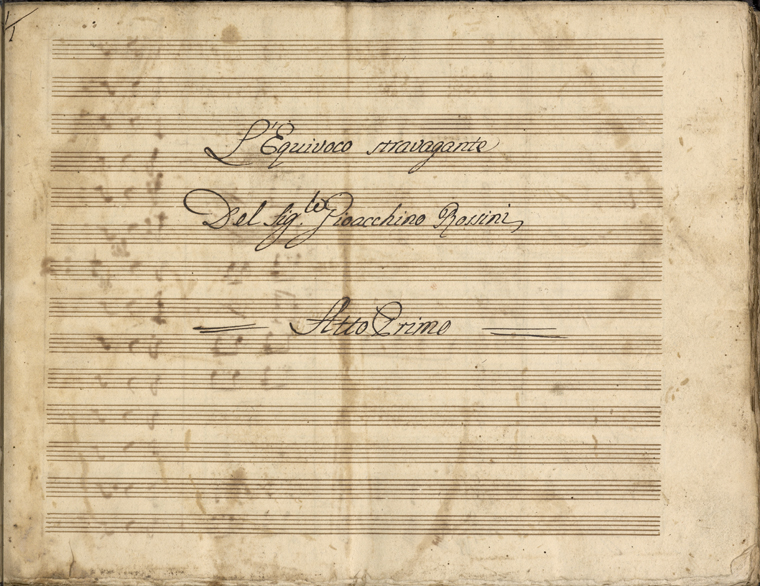 1
L'Equivoco stravagante
Del Sig.re Gioacchino Rossini
Atto Primo